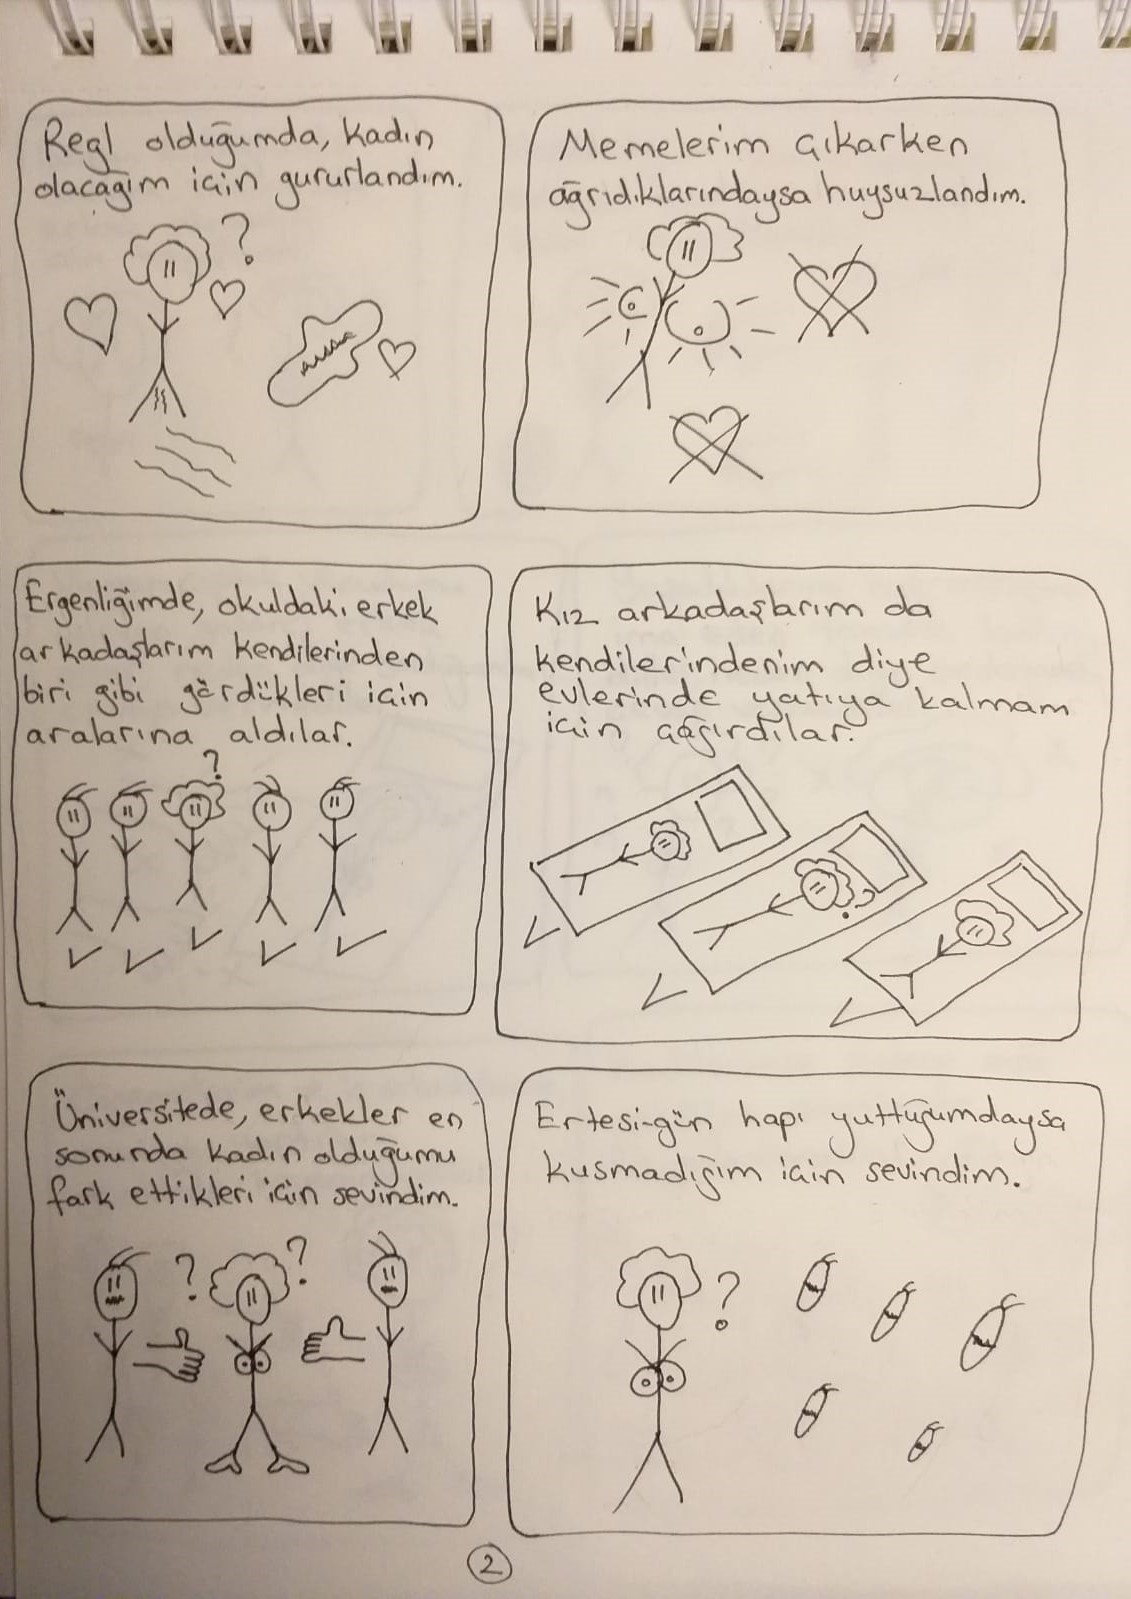 Regl olduğumda, kadın
olacağım için gururlandım.
?
Memelerim çıkarken
ağrıdıklarındaysa huysuzlandım.
Ergenliğimde, okuldaki erkek
arkadaşlarım kendilerinden
biri gibi gördükleri için
aralarına aldılar.
?
Kız arkadaşlarım da
kendilerindenim diye
evlerinde yatıya kalmam
için çağırdılar.
?
Üniversitede, erkekler en
sonunda kadın olduğumu
fark ettikleri için sevindim.
? ?
Ertesi-gün hapı yuttuğumdaysa
kusmadığım için sevindim.
?
2